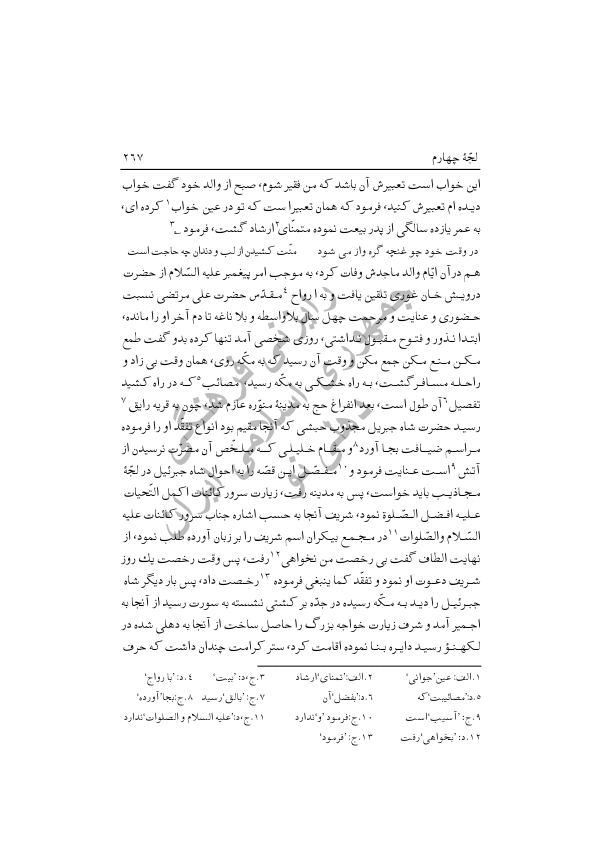 لجّهٔ چهارم ۲۶۷
این خواب است تعبیرش آن باشد که من فقیر شوم، صبح از والد خود گفت خواب
دیده ام تعبیرش کنید، فرمود که همان تعبیرا ست که تو در عین خواب۱ کرده ای،
به عمر یازده سالگی از پدر بیعت نموده متمنّای۲ ارشاد گشت، فرمود ۳
در وقت خود چو غنچه گره واز می شود منّت کشیدن از لب و دندان چه حاجت است
هم درآن ایّام والد ماجدش وفات کرد، به موجب امر پیغمبر علیه السّلام از حضرت
درویش خان غوری تلقین یافت و به ا رواح۴ مقدّس حضرت علی مرتضی نسبت
حضوری و عنایت و مرحمت چهل سال بلاواسطه و بلا ناغه تا دم آخر او را مانده،
ابتدا نذور و فتوح مقبول نداشتی، روزی شخصی آمد تنها کرده بدو گفت طمع
مکن منع مکن جمع مکن و وقت آن رسید که به مکّه روی، همان وقت بی زاد و
راحله مسافر گشت، به راه خشکی به مکّه رسید، مصائب۵ که در راه کشید
تفصیل۶ آن طول است، بعد انفراغ حج به مدینهٔ منوّره عازم شد، چون به قریه رایق۷
رسید حضرت شاه جبریل مجذوب حبشی که آنجا مقیم بود انواع تفقّد او را فرموده
مراسم ضیافت بجا آورد۸ و مقام خلیلی که ملخّص آن مضرّت نرسیدن از
آتش۹ است عنایت فرمود و۱۰ مفصّل این قصّه را به احوال شاه جبرئیل در لجّهٔ
مجاذیب باید خواست، پس به مدینه رفت، زیارت سرور کائنات اکمل التّحیات
علیه افضل الصّلوة نمود، شریف آنجا به حسب اشاره جناب سرور کائنات علیه
السّلام والصّلوات۱۱ در مجمع بیکران اسم شریف را بر زبان آورده طلب نمود، از
نهایت الطاف گفت بی رخصت من نخواهی۱۲ رفت، پس وقت رخصت یك روز
شریف دعوت او نمود و تفقّد کما ینبغی فرموده۱۳ رخصت داد، پس بار دیگر شاه
جبرئیل را دید به مکّه رسیده در جدّه بر کشتی نشسته به سورت رسید از آنجا به
اجمیر آمد و شرف زیارت خواجه بزرگ را حاصل ساخت از آنجا به دهلی شده در
لکهنؤ رسید دایره بنا نموده اقامت کرد، ستر کرامت چندان داشت که حرف
۱.الف: عین’جوانی‘ ۲.الف:’تمنای‘ارشاد ۳.ج،د: ’بیت‘ ۴.د: ’با رواج‘
۵.د:’مصائبیت‘که ۶.د:’بفضل‘آن ۷.ج: ’بالق‘رسید ۸.ج:بجا’آورده‘
۹.ج: ’آسیب‘است ۱۰.ج:فرمود ’و‘ندارد ۱۱.ج،د:’علیه السلام و الصلوات‘ندارد
۱۲.د: ’بخواهی‘رفت ۱۳.ج: ’فرمود‘
رایزنی فرهنگی
جمهوری اسلامی ایران
دهلی نو